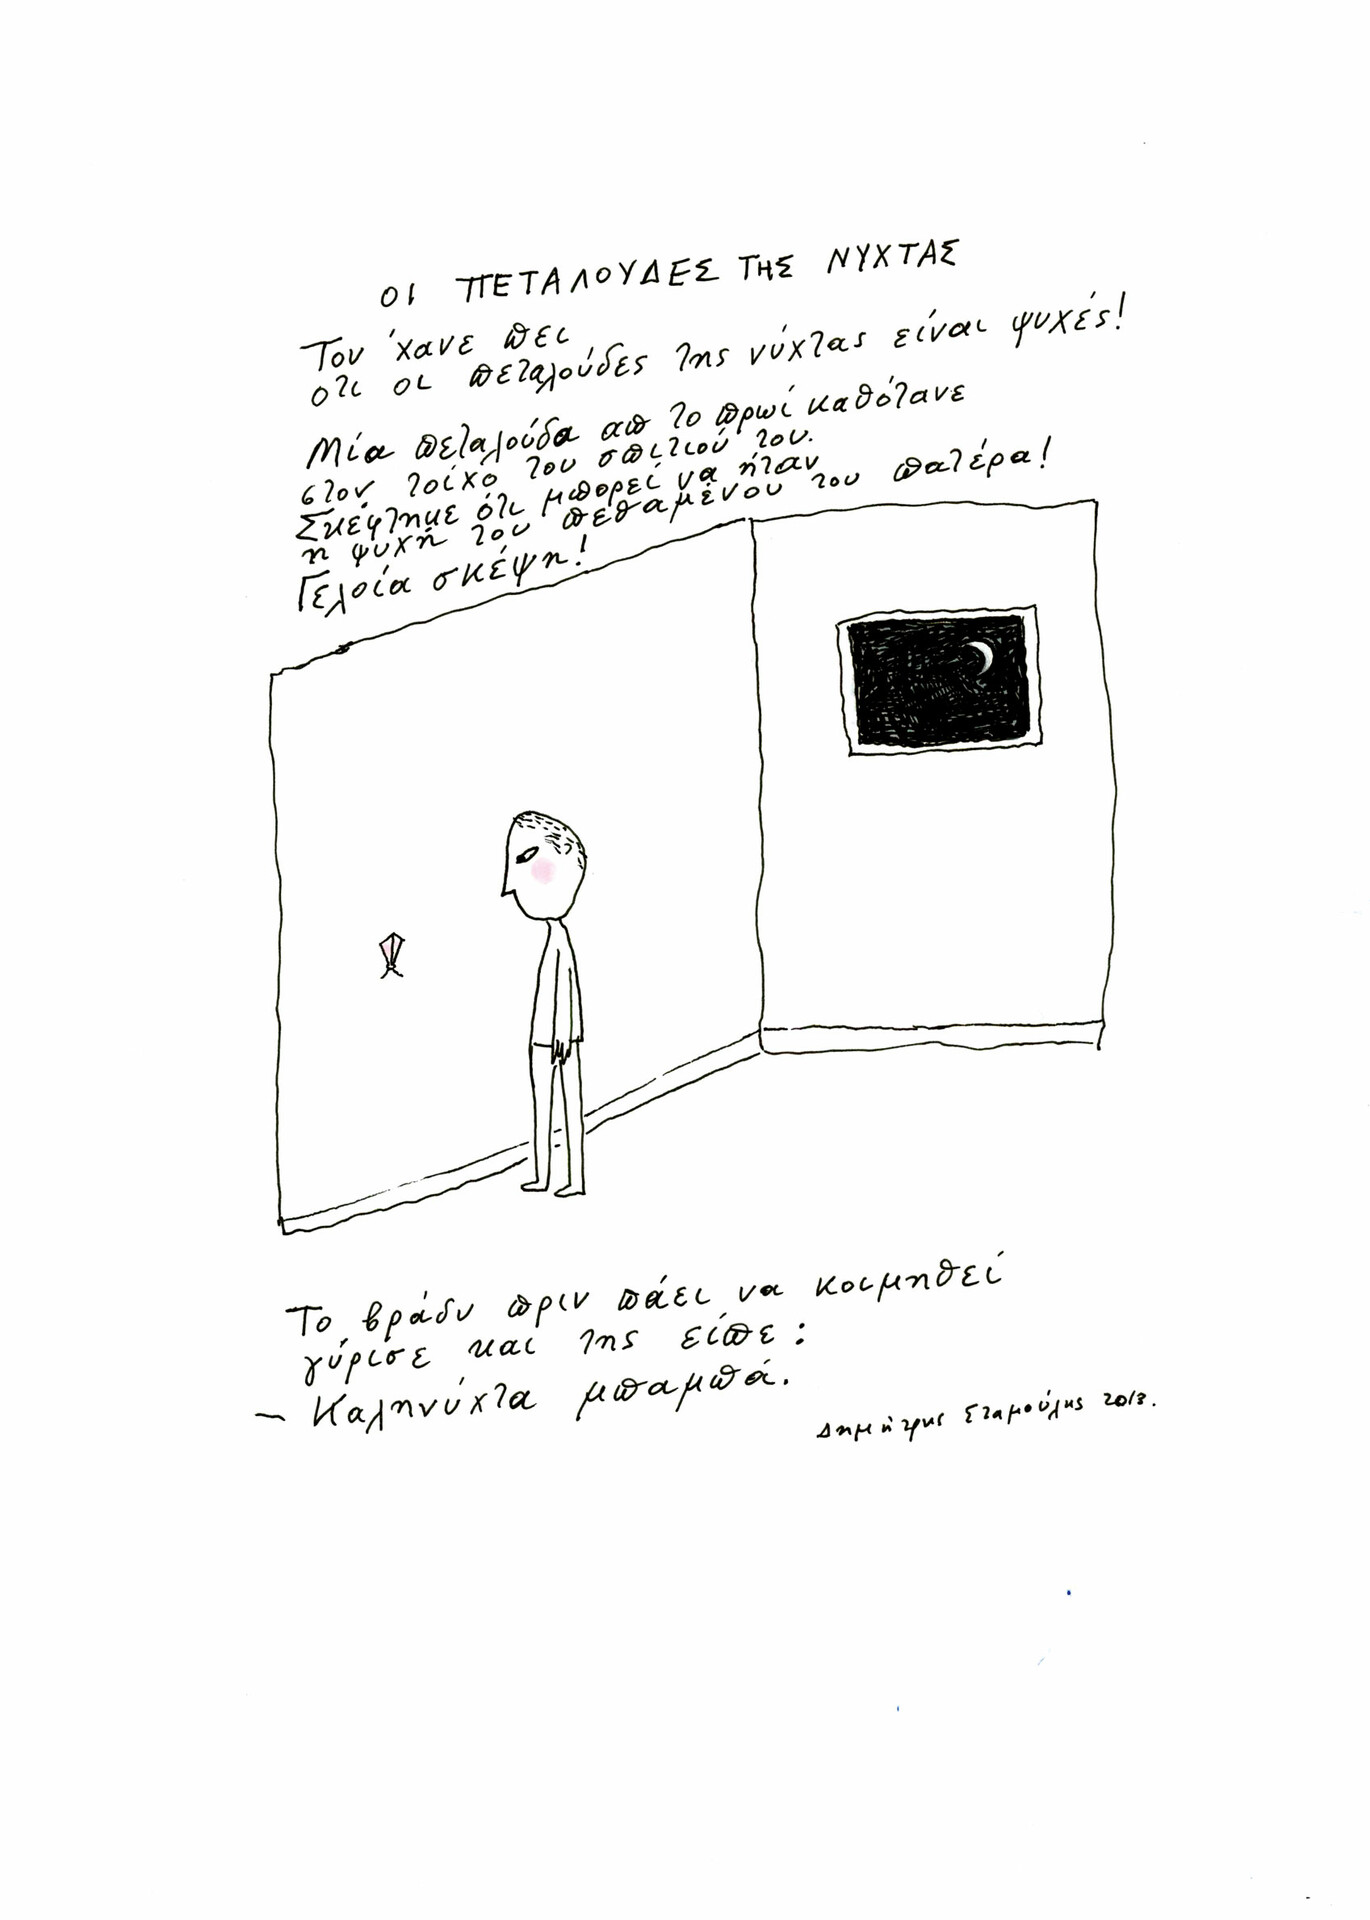 ΟΙ ΠΕΤΑΛΟΥΔΕΣ ΤΗΣ ΝΥΧΤΑΣ
Του 'χανε πει
οτι οι πεταλούδες της νύχτας είναι ψυχές!
Μία πεταλούδα απ το πρωί καθότανε
στον τοίχο του σπιτιού του.
Σκέφτηκε ότι μπορεί να ήταν
η ψυχή του πεθαμένου του πατέρα!
Γελοία σκέψη!
Το βράδυ πριν πάει να κοιμηθεί
γύρισε και της είπε:
– Καληνύχτα μπαμπά.
Δημήτρης Σταμούλης 2013.